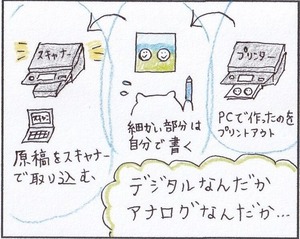 プリンター
PCで作ったのを
プリントアウト
細かい部分は
自分で書く
スキャナー
原稿をスキャナー
で取り込む
デジタルなんだか
アナログなんだか…